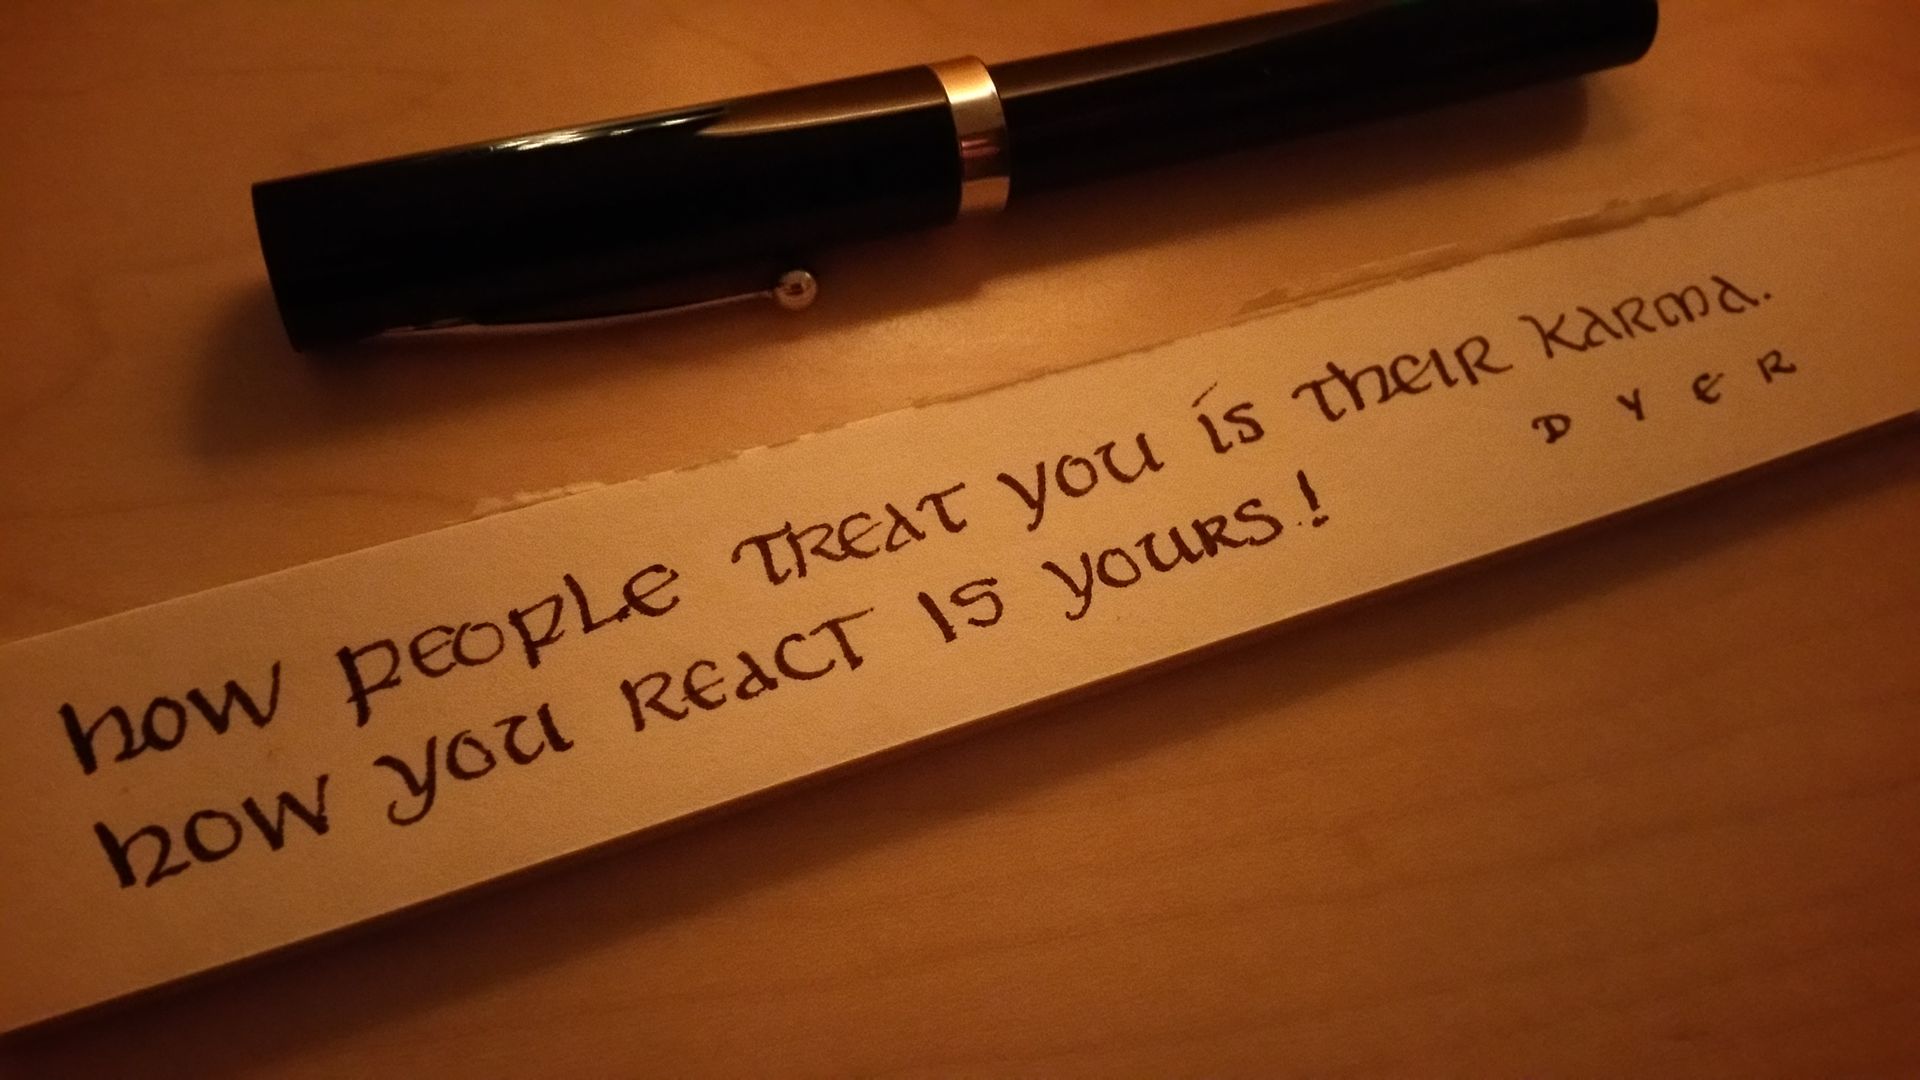 how people treat you is their karma.
how you react is yours!
DYER